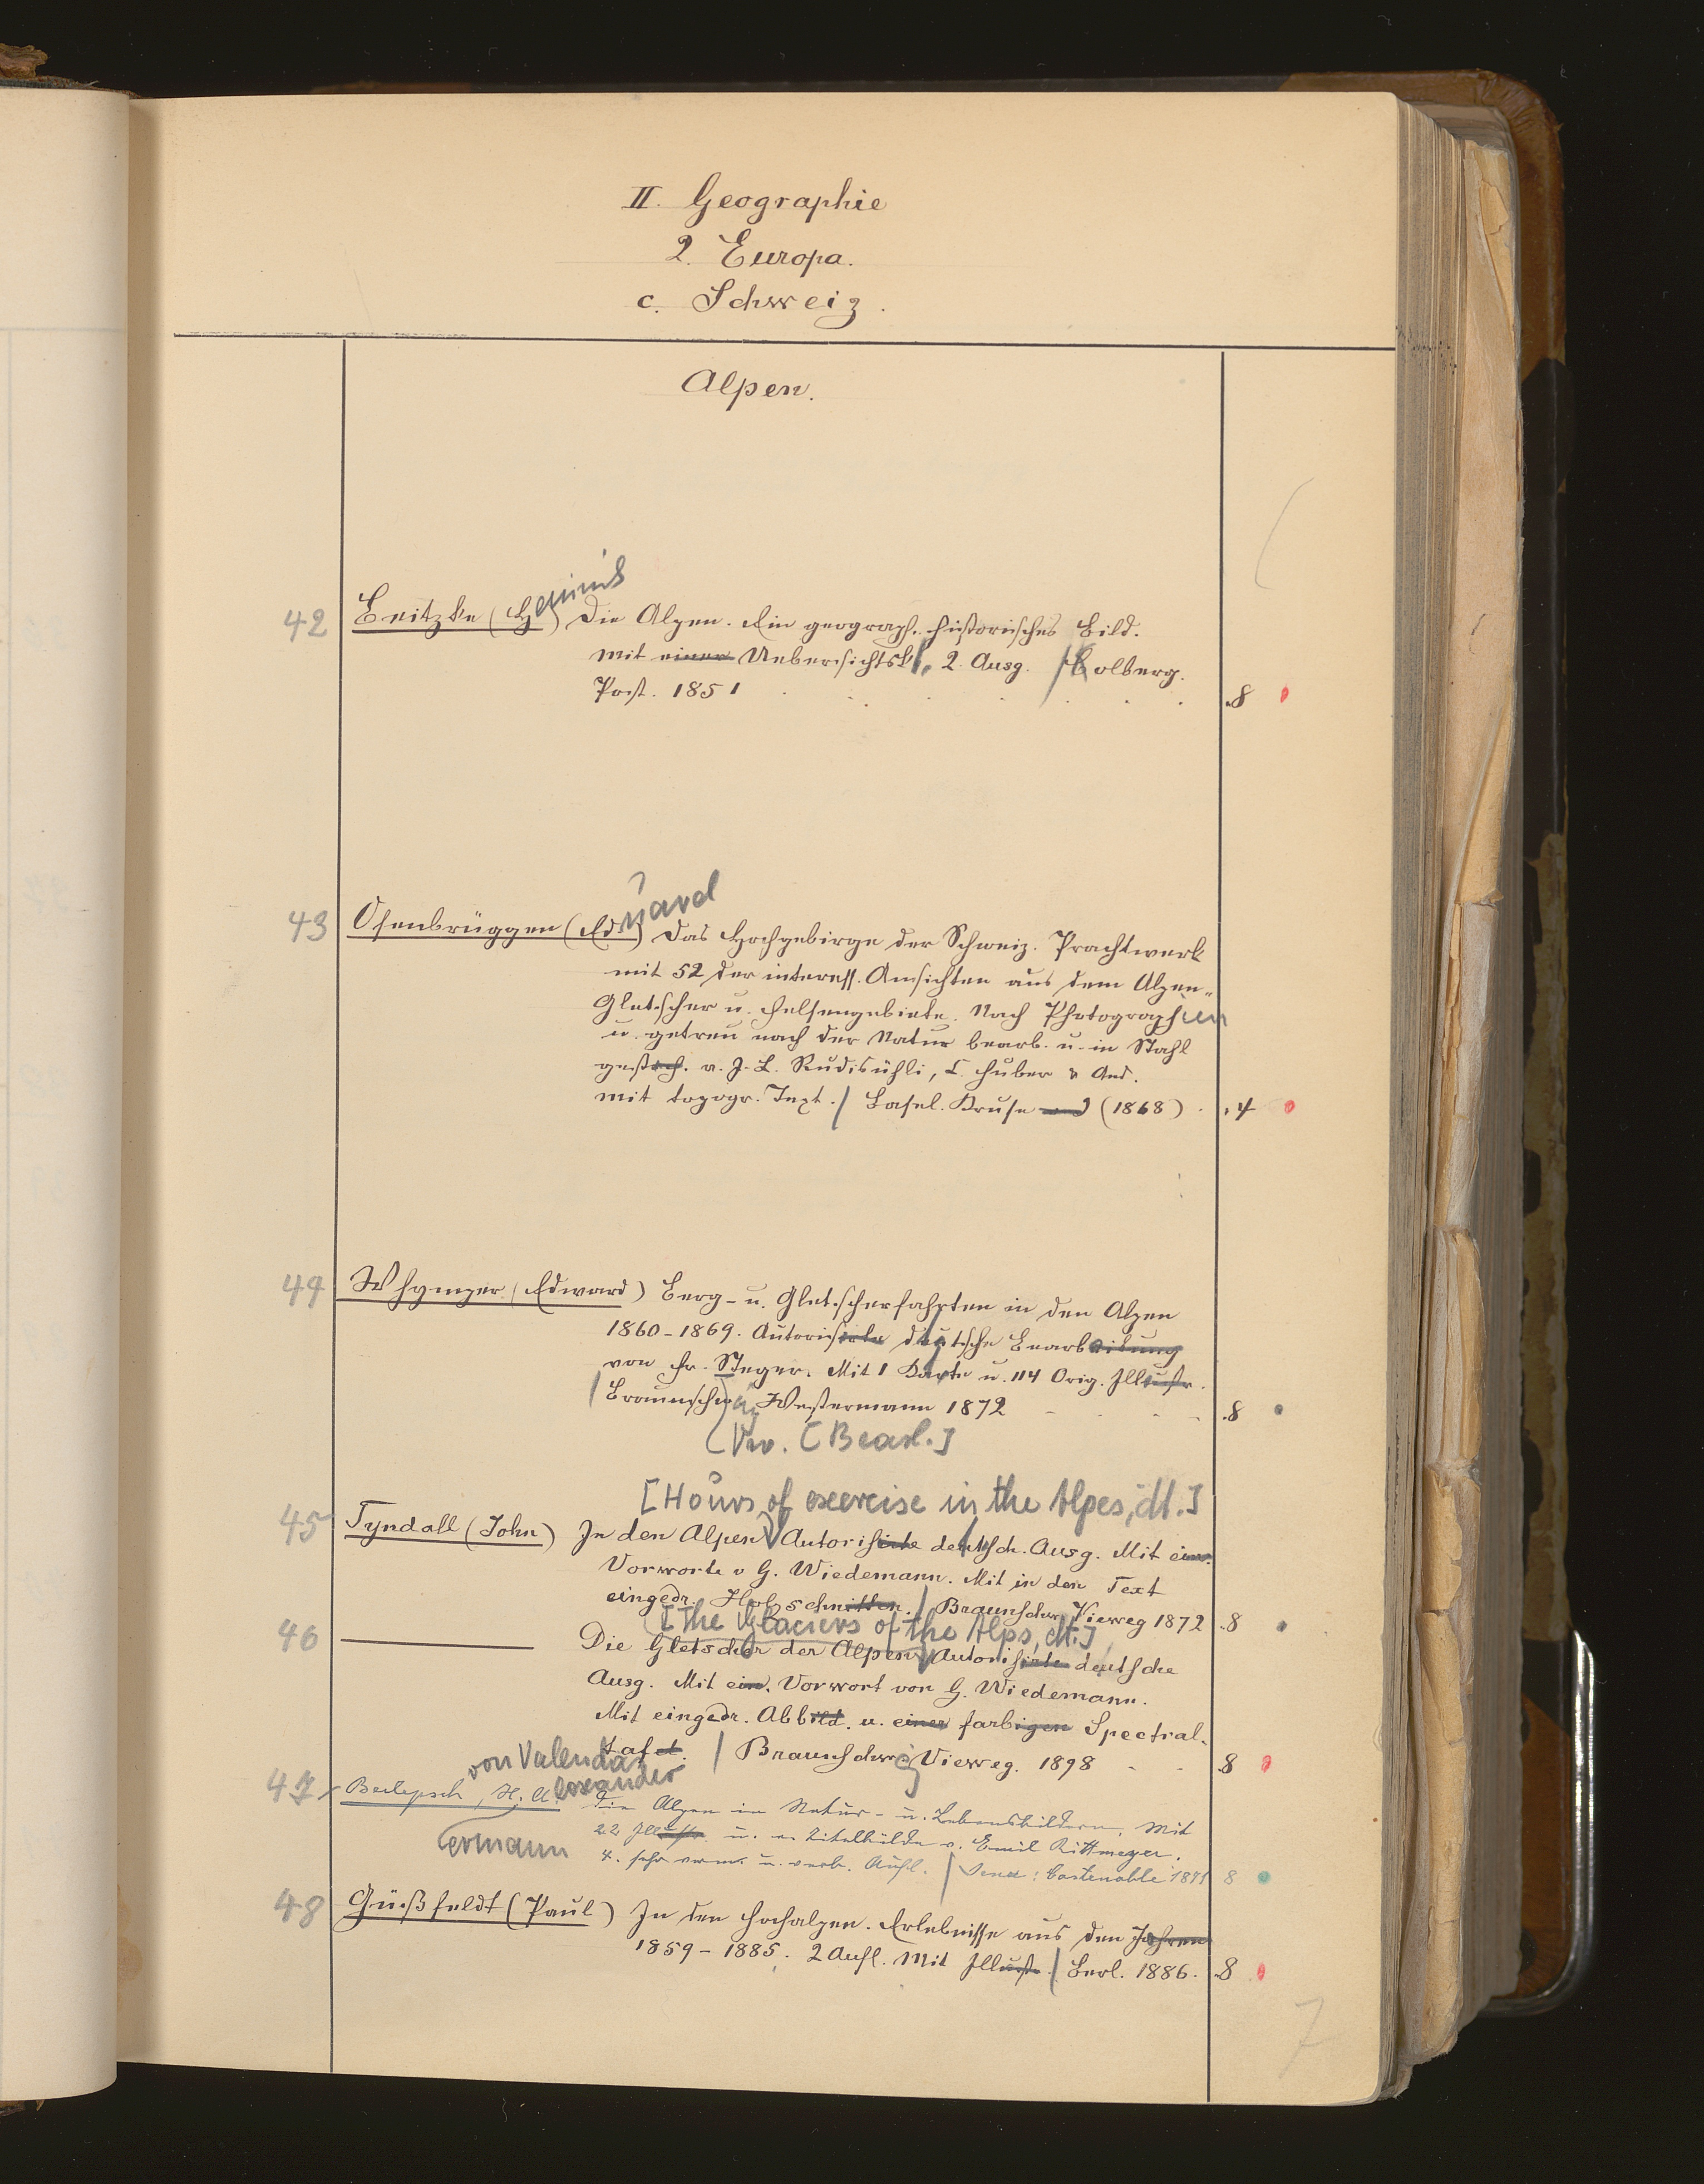 II. Geographie
2. Europa.
c. Schweiz.
Alpen.
42 Beitzke (Heinrich) Die Alpen. Ein geograph. historisches Bild.
Mit einer Uebersichtsk., 2. Ausg. / Colberg.
Post. 1851 . . . . . . . 8
43 Osenbrüggen (Eduard) Das Hochgebirge der Schweiz. Prachtwerk
mit 52 der interess. Ansichten aus dem Alpen-
Gletscher u. Felsengebiete. Nach Photographien
u. getreu nach der Natur bearb. u. in Stahl
gestoch. v. J. L. Rüdisühli, C. Huber & And.
Mit topogr. Text. / Basel. Kruse (1868) . . 4
44 Whymper (Edward) Berg- u. Gletscherfahrten in den Alpen
1860-1869. Autorisirte deutsche Bearbeitung
von Fr. Steger. Mit 1 Karte u. 114 Orig. Illustr.
/ Braunschweig Westermann 1872 - - - - 8
[Bearb.]
[Hours of exercise in the Alpes, dt.]
45 Tyndall (John) In den Alpen Autorisirte deutsch. Ausg. Mit ein.
Vorworte v G. Wiedemann. Mit in den Text
eingedr. Holzschnitten. / Braunschw. Vieweg 1872 . 8
[The Glaciers of the Alps, dt.]
46 ——— Die Gletscher der Alpen Autorisirte deutsche
Ausg. Mit ein. Vorwort von G. Wiedemann.
Mit eingedr. Abbild. u. einer farbigen Spectral-
tafel. / Braunschweig Vieweg. 1898 - - 8
von Valendas
47 Berlepsch, H. Alexander Die Alpen in Natur- u. Lebensbildern. Mit
ermann 22 Illustr. u. e. Titelbilde v. Emil Rittmeyer.
4. sehr verm. u. verb. Aufl. / Jena: Costenoble 1871 8
48 Güßfeldt (Paul) In den Hochalpen. Erlebnisse aus den Jahren
1859-1885. 2 Aufl. Mit Illustr. / Berl. 1886. . 8
7